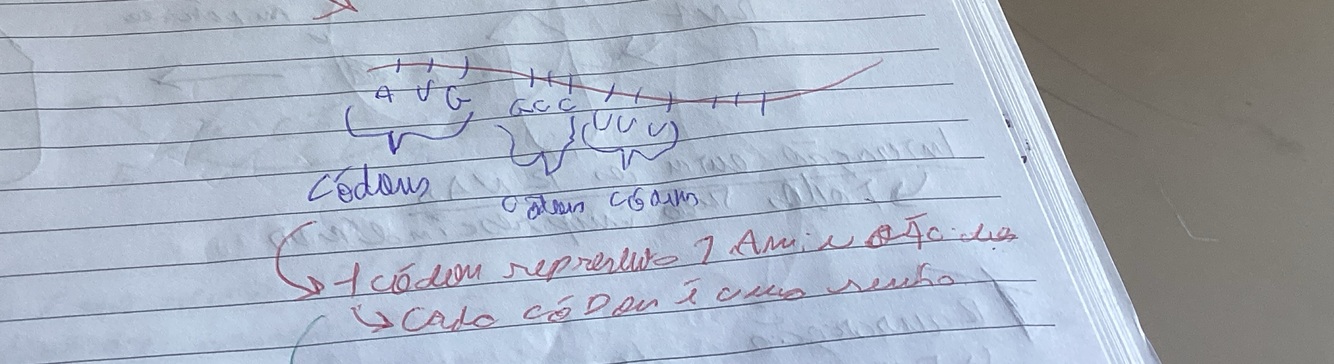 A U G GCC UUU
códons códon códons
1 códon representa 1 Aminoácidos
Cada códon é uma senha